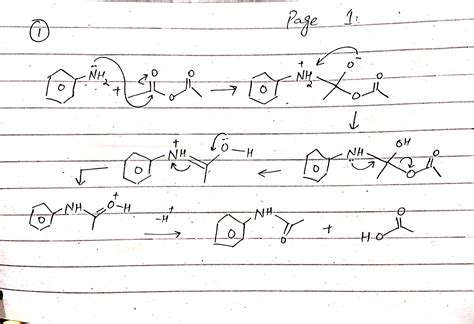 Page 1:
①
NH₂ + O O O → +NH₂ O⁻ O O
↓
+NH O-H ← NH OH O O
NH +O-H -H⁺ → NH O + HO O